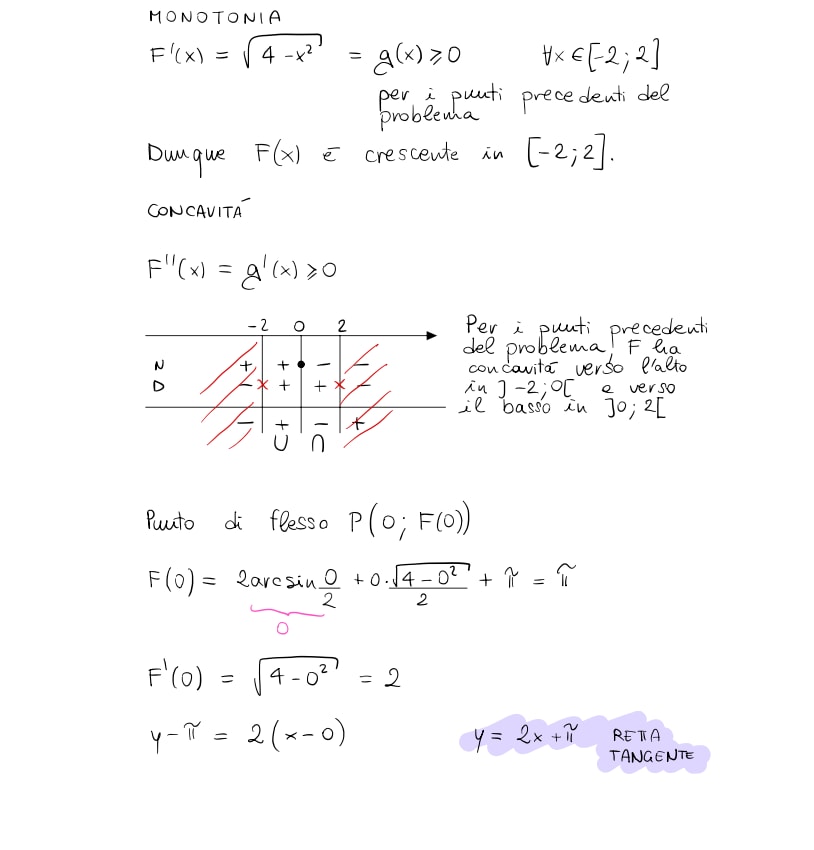 MONOTONIA
F'(x) = √(4 - x²) = g(x) ⩾ 0 ∀x ∈ [-2; 2]
per i punti precedenti del
problema
Dunque F(x) è crescente in [-2; 2].
CONCAVITÁ
F''(x) = g'(x) ⩾ 0
-2 0 2
N + + • - -
D - × + + × -
- + - +
∪ ∩
Per i punti precedenti
del problema, F ha
concavitá verso l'alto
in ]-2; 0[ e verso
il basso in ]0; 2[
Punto di flesso P(0; F(0))
F(0) = 2arcsin 0/2 + 0·√(4 - 0²)/2 + π = π
0
F'(0) = √(4 - 0²) = 2
y - π = 2(x - 0) y = 2x + π RETTA
TANGENTE